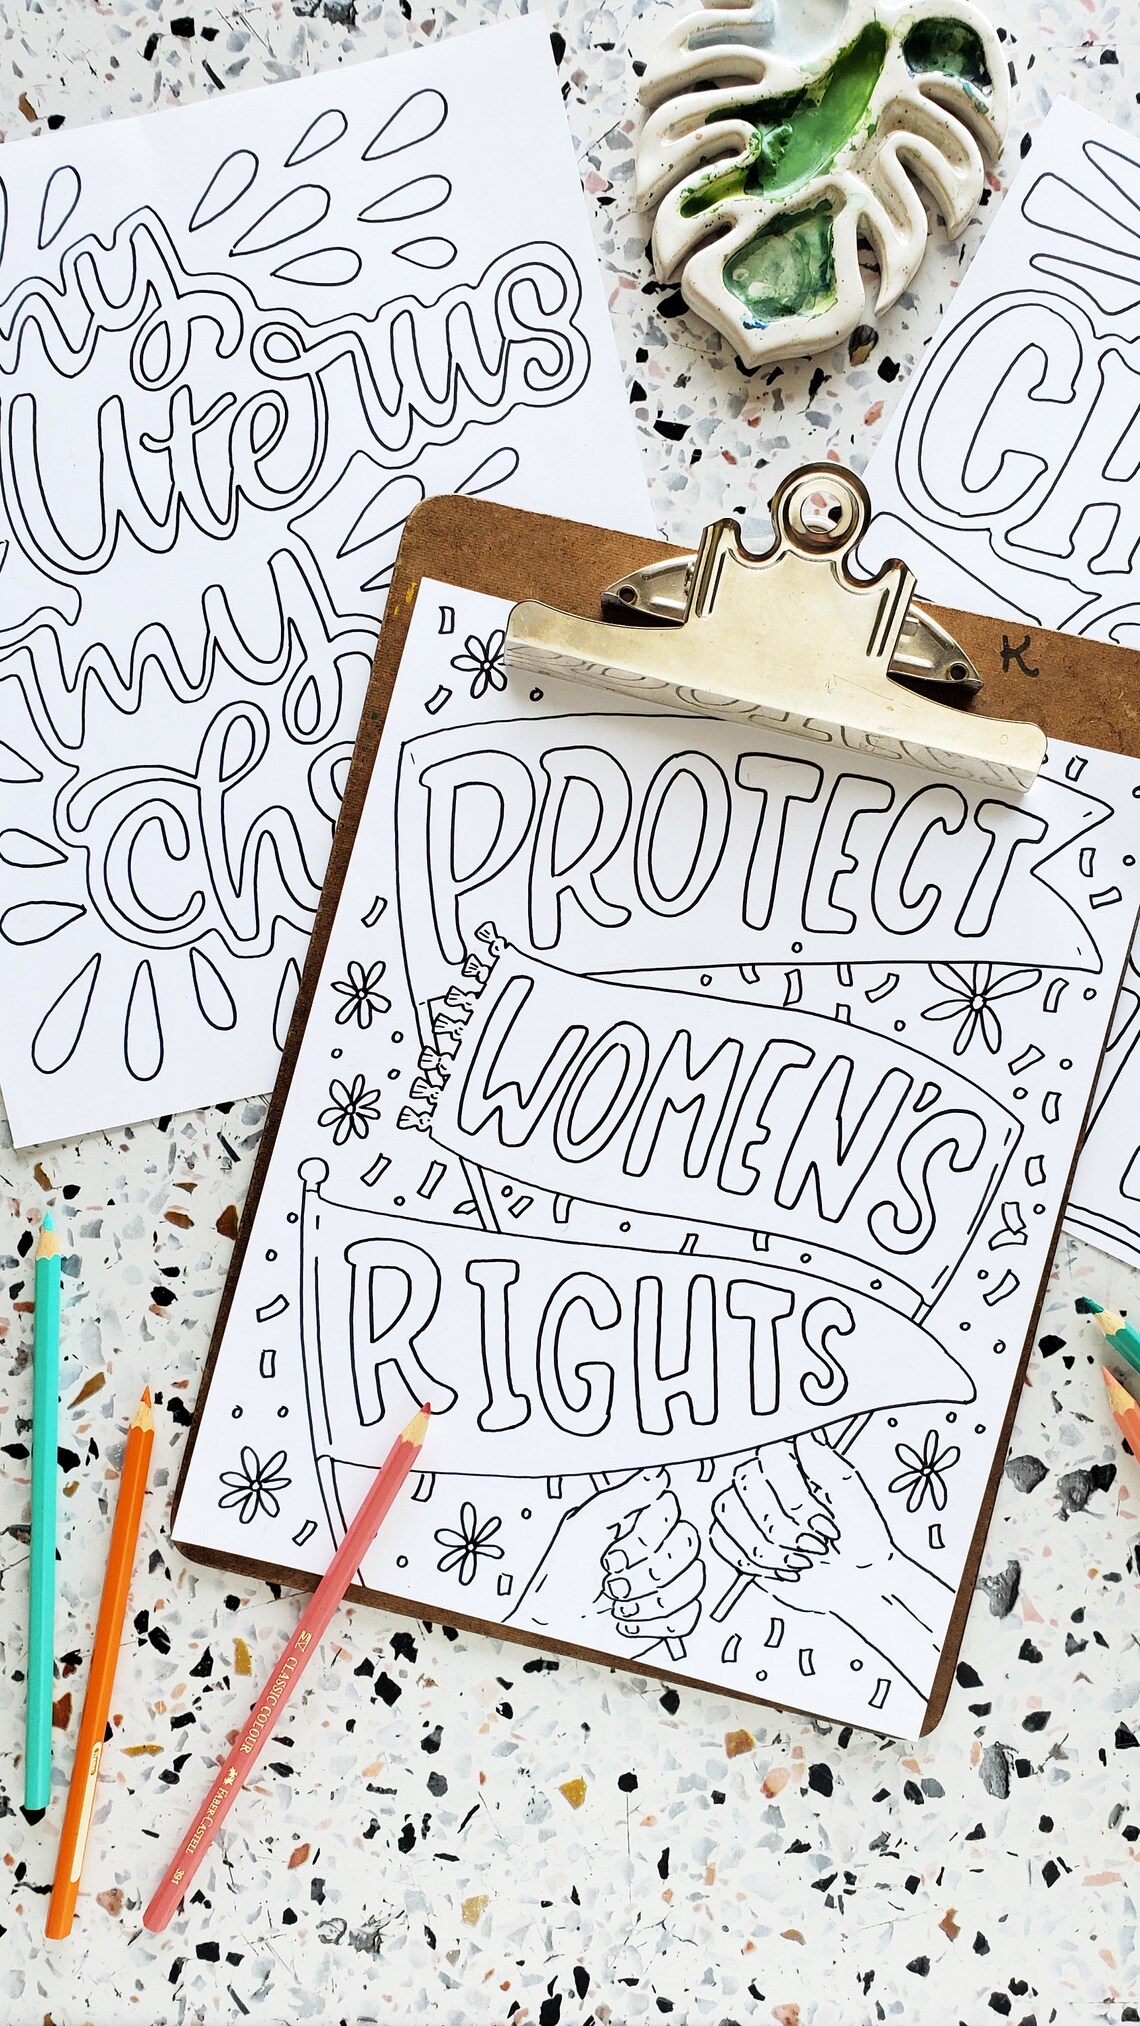 my
uterus
my
K
PROTECT
WOMEN'S
RIGHTS
CLASSIC COLOUR
FABER-CASTELL
391